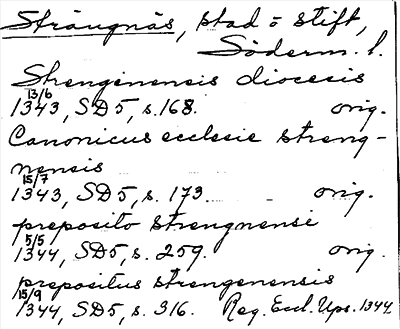 Strängnäs, stad o stift,
Söderm. l.
Strenginensis diocesis
13/6
1343, SD5, s. 168. orig.
Canonicus ecclesie streng-
nensis
15/7
1343, SD5, s. 173 orig.
preposito strengnensi
5/5
1344, SD5, s. 259. orig.
prepositus strengenensis
15/9
1344, SD5, s. 316. Reg. Eccl. Ups. 1344.